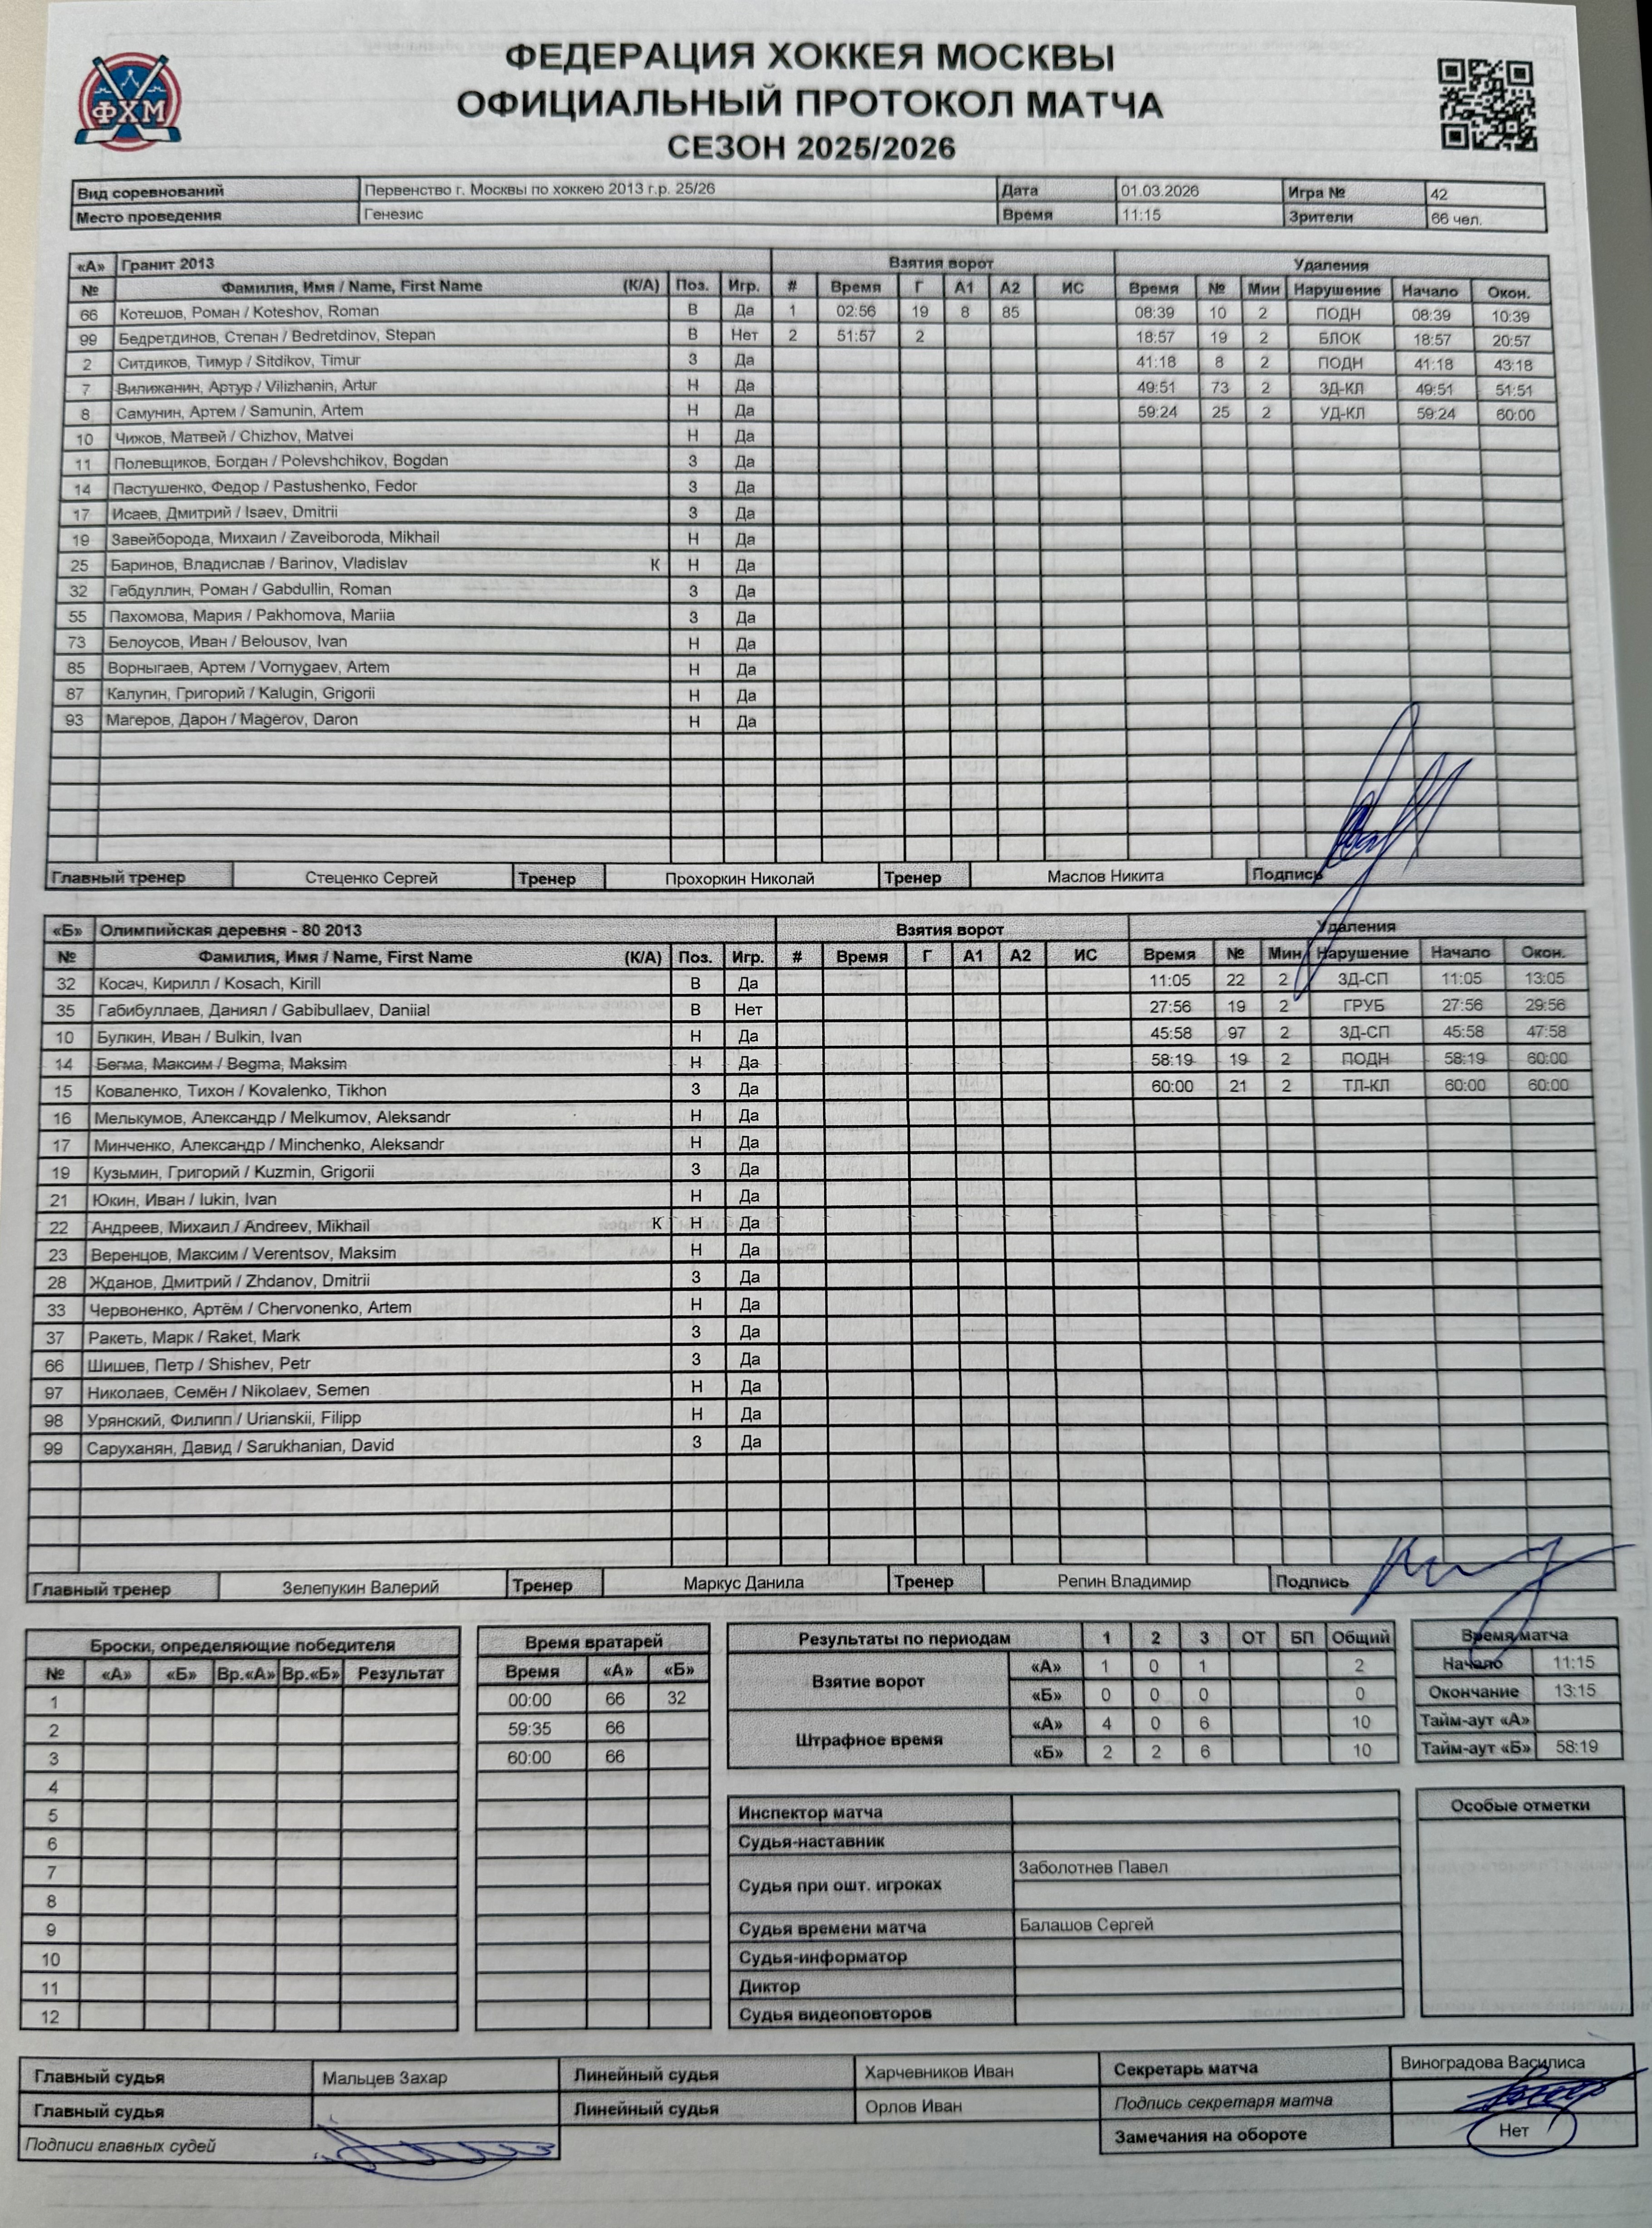 ФЕДЕРАЦИЯ ХОККЕЯ МОСКВЫ
ОФИЦИАЛЬНЫЙ ПРОТОКОЛ МАТЧА
СЕЗОН 2025/2026
ФХМ
Вид соревнований Первенство г. Москвы по хоккею 2013 г.р. 25/26 Дата 01.03.2026 Игра № 42
Место проведения Генезис Время 11:15 Зрители 66 чел.
«А» Гранит 2013 Взятия ворот Удаления
№ Фамилия, Имя / Name, First Name (К/А) Поз. Игр. # Время Г А1 А2 ИС Время № Мин Нарушение Начало Окон.
66 Котешов, Роман / Koteshov, Roman В Да 1 02:56 19 8 85 08:39 10 2 ПОДН 08:39 10:39
99 Бедретдинов, Степан / Bedretdinov, Stepan В Нет 2 51:57 2 18:57 19 2 БЛОК 18:57 20:57
2 Ситдиков, Тимур / Sitdikov, Timur З Да 41:18 8 2 ПОДН 41:18 43:18
7 Вилижанин, Артур / Vilizhanin, Artur Н Да 49:51 73 2 ЗД-КЛ 49:51 51:51
8 Самунин, Артем / Samunin, Artem Н Да 59:24 25 2 УД-КЛ 59:24 60:00
10 Чижов, Матвей / Chizhov, Matvei Н Да
11 Полевщиков, Богдан / Polevshchikov, Bogdan З Да
14 Пастушенко, Федор / Pastushenko, Fedor З Да
17 Исаев, Дмитрий / Isaev, Dmitrii З Да
19 Завейборода, Михаил / Zaveiboroda, Mikhail Н Да
25 Баринов, Владислав / Barinov, Vladislav К Н Да
32 Габдуллин, Роман / Gabdullin, Roman З Да
55 Пахомова, Мария / Pakhomova, Mariia З Да
73 Белоусов, Иван / Belousov, Ivan Н Да
85 Ворныгаев, Артем / Vornygaev, Artem Н Да
87 Калугин, Григорий / Kalugin, Grigorii Н Да
93 Магеров, Дарон / Magerov, Daron Н Да
Главный тренер Стеценко Сергей Тренер Прохоркин Николай Тренер Маслов Никита Подпись
«Б» Олимпийская деревня - 80 2013 Взятия ворот Удаления
№ Фамилия, Имя / Name, First Name (К/А) Поз. Игр. # Время Г А1 А2 ИС Время № Мин Нарушение Начало Окон.
32 Косач, Кирилл / Kosach, Kirill В Да 11:05 22 2 ЗД-СП 11:05 13:05
35 Габибуллаев, Даниял / Gabibullaev, Daniial В Нет 27:56 19 2 ГРУБ 27:56 29:56
10 Булкин, Иван / Bulkin, Ivan Н Да 45:58 97 2 ЗД-СП 45:58 47:58
14 Бегма, Максим / Begma, Maksim Н Да 58:19 19 2 ПОДН 58:19 60:00
15 Коваленко, Тихон / Kovalenko, Tikhon З Да 60:00 21 2 ТЛ-КЛ 60:00 60:00
16 Мелькумов, Александр / Melkumov, Aleksandr Н Да
17 Минченко, Александр / Minchenko, Aleksandr Н Да
19 Кузьмин, Григорий / Kuzmin, Grigorii З Да
21 Юкин, Иван / Iukin, Ivan Н Да
22 Андреев, Михаил / Andreev, Mikhail К Н Да
23 Веренцов, Максим / Verentsov, Maksim Н Да
28 Жданов, Дмитрий / Zhdanov, Dmitrii З Да
33 Червоненко, Артём / Chervonenko, Artem Н Да
37 Ракеть, Марк / Raket, Mark З Да
66 Шишев, Петр / Shishev, Petr З Да
97 Николаев, Семён / Nikolaev, Semen Н Да
98 Урянский, Филипп / Urianskii, Filipp Н Да
99 Саруханян, Давид / Sarukhanian, David З Да
Главный тренер Зелепукин Валерий Тренер Маркус Данила Тренер Репин Владимир Подпись
Броски, определяющие победителя
№ «А» «Б» Вр.«А» Вр.«Б» Результат
1
2
3
4
5
6
7
8
9
10
11
12
Время вратарей
Время «А» «Б»
00:00 66 32
59:35 66
60:00 66
Результаты по периодам 1 2 3 ОТ БП Общий
Взятие ворот «А» 1 0 1 2
«Б» 0 0 0 0
Штрафное время «А» 4 0 6 10
«Б» 2 2 6 10
Время матча
Начало 11:15
Окончание 13:15
Тайм-аут «А»
Тайм-аут «Б» 58:19
Инспектор матча
Судья-наставник
Судья при ошт. игроках Заболотнев Павел
Судья времени матча Балашов Сергей
Судья-информатор
Диктор
Судья видеоповторов
Особые отметки
Главный судья Мальцев Захар Линейный судья Харчевников Иван Секретарь матча Виноградова Василиса
Главный судья Линейный судья Орлов Иван Подпись секретаря матча
Подписи главных судей Замечания на обороте Нет